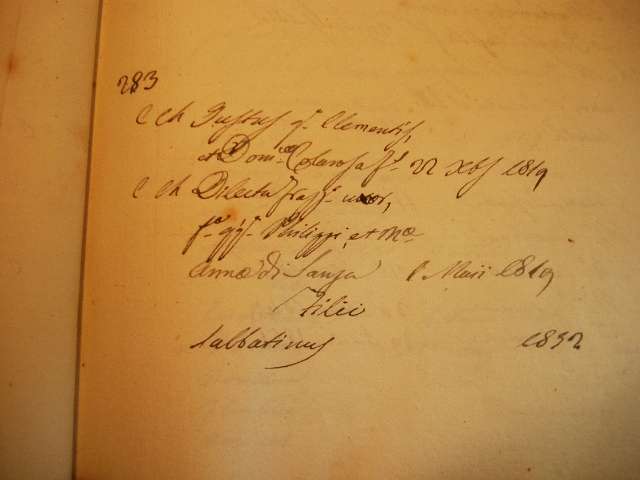 283
C Ch Justus q.m Clementis,
et Dom.cæ Colarossa f.s 22 Xbs 1819
C Ch Dilecta uxor,
f.a qq.m Philippi, et M.æ
Annæ di Sanza 1 Maii 1819
Filii
Sabbatinus 1852